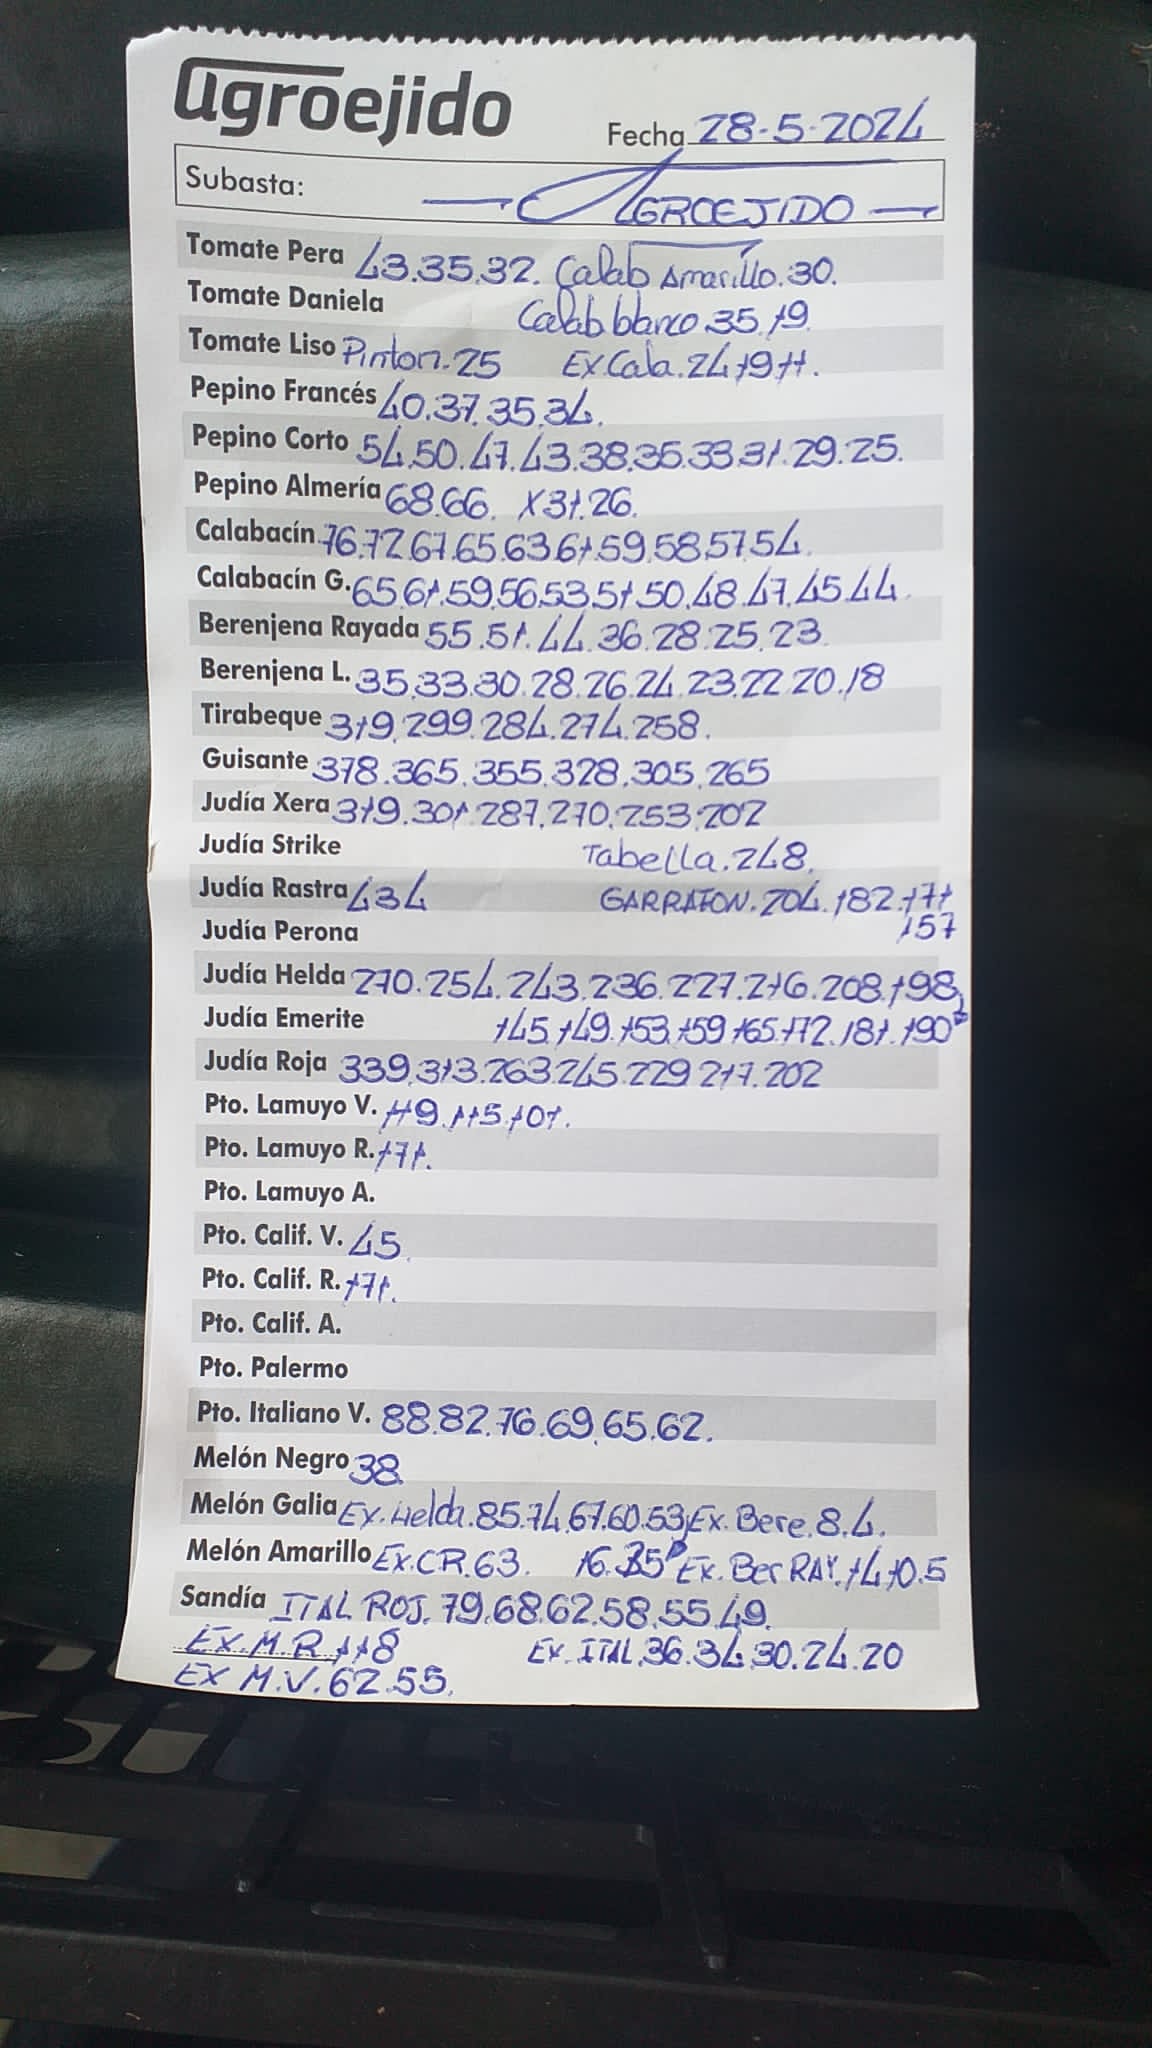 agroejido
Fecha 28-5-2024
Subasta: AGROEJIDO
Tomate Pera 43.35.32. Calab Amarillo.30.
Tomate Daniela Calab blanco 35.19
Tomate Liso Pinton.25 Ex Cala.24.19.11.
Pepino Francés 40.37.35.34.
Pepino Corto 54.50.47.43.38.35.33.31.29.25.
Pepino Almería 68.66. X31.26.
Calabacín 76.72.67.65.63.61.59.58.57.54.
Calabacín G. 65.61.59.56.53.51.50.48.47.45.44.
Berenjena Rayada 55.51.44.36.28.25.23.
Berenjena L. 35.33.30.28.26.24.23.22.20.18
Tirabeque 319.299.284.274.258.
Guisante 378.365.355.328.305.265
Judía Xera 319.301.287.270.253.202
Judía Strike Tabella.248.
Judía Rastra 434 GARRAFON.204.182.171
Judía Perona 157
Judía Helda 270.254.243.236.227.216.208.198,
Judía Emerite 145.149.153.159.165.172.181.190
Judía Roja 339.313.263.245.229.217.202
Pto. Lamuyo V. 119.115.101.
Pto. Lamuyo R. 171.
Pto. Lamuyo A.
Pto. Calif. V. 45.
Pto. Calif. R. 171.
Pto. Calif. A.
Pto. Palermo
Pto. Italiano V. 88.82.76.69.65.62.
Melón Negro 38.
Melón Galia Ex.Helda.85.74.67.60.53, Ex.Bere.8.4.
Melón Amarillo Ex.CR.63. 16. Ex.Ber RAY.14.10.5
Sandía ITAL ROJ. 79.68.62.58.55.49.
EX.M.R.118 Ex.ITAL.36.34.30.24.20
EX M.V.62.55.